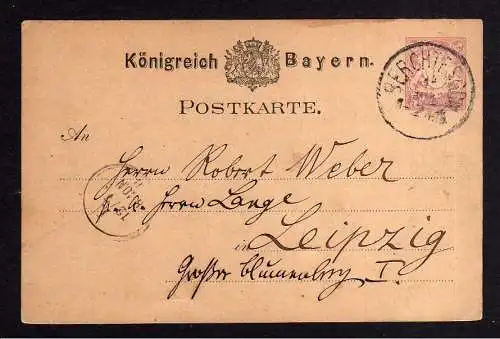 Königreich Bayern.
POSTKARTE.
An
Herrn Robert Weber
Herrn Lange
in Leipzig
Großer Blumenberg I.